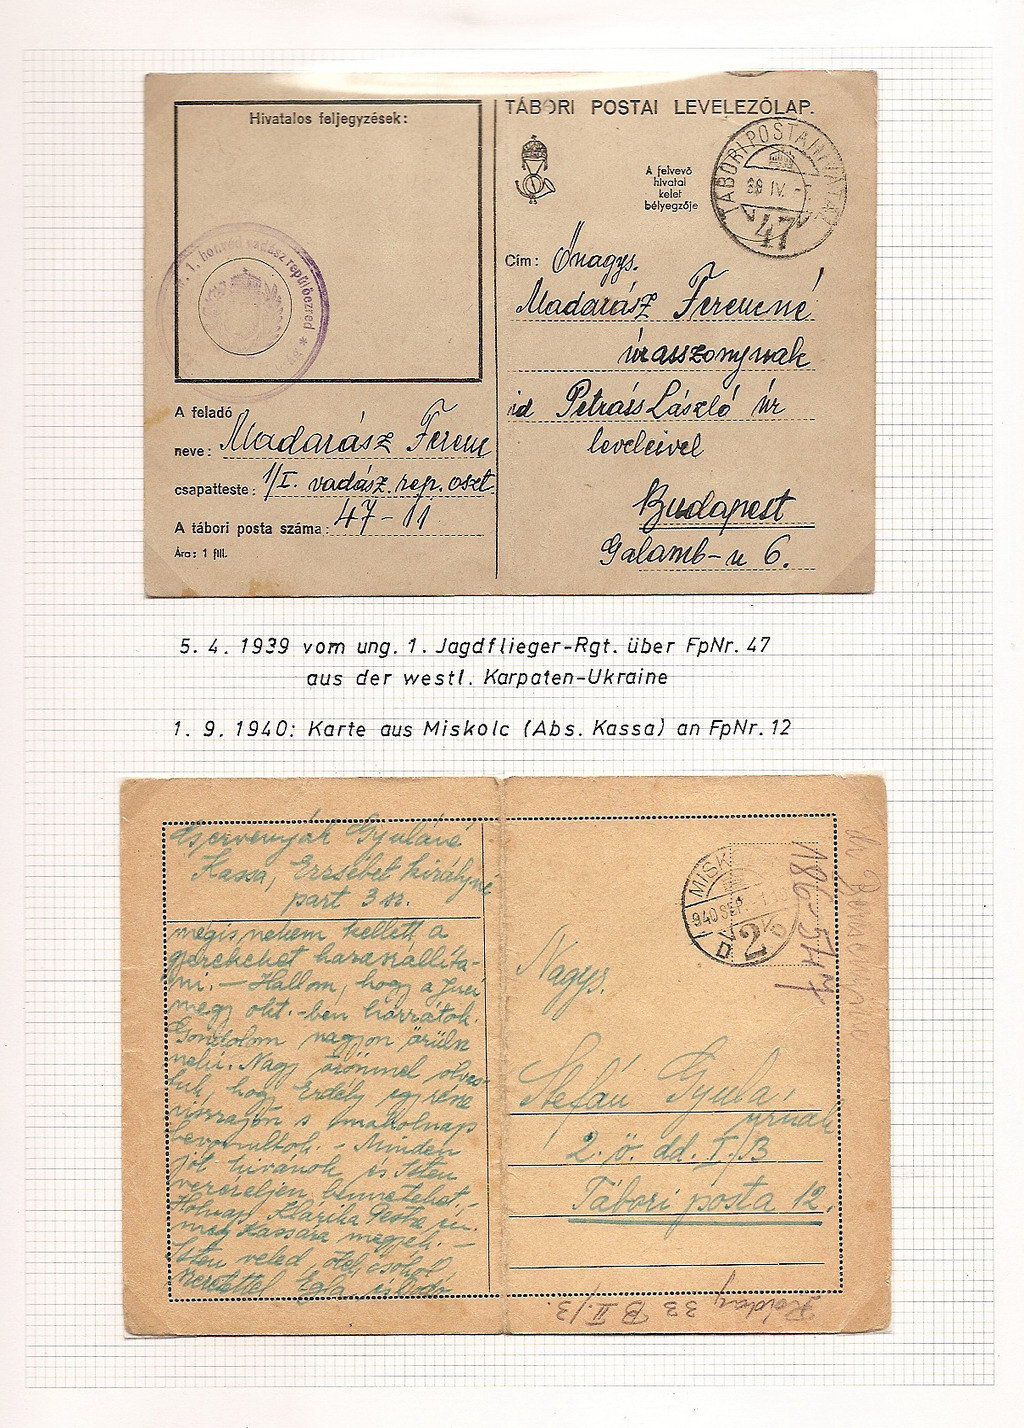 Hivatalos feljegyzések:
TÁBORI POSTAI LEVELEZŐLAP.
A felvevő
hivatal
kelet
bélyegzője
TÁBORI POSTAHIVATAL
IV.
47
1. honvéd vadász repülőezred *
Cím: Önagys.
Madarász Ferencné
úrasszonynak
id Petráss László úr
leveleivel
Budapest
Galamb-u 6.
A feladó
neve: Madarász Ferenc
csapatteste: 1/I. vadász. rep. oszt.
A tábori posta száma: 47-11
Ára: 1 fill.
5. 4. 1939 vom ung. 1. Jagdflieger-Rgt. über FpNr. 47
aus der westl. Karpaten-Ukraine
1. 9. 1940: Karte aus Miskolc (Abs. Kassa) an FpNr. 12
Cservenyák Gyuláné
Kassa, Erzsébet királyné
part 3 sz.
mégis nekem kellett a
gyerekeket hazaszállíta-
ni. - Hallom, hogy a
megy okt.-ben hozzátok.
Gondolom nagyon örülsz
neki. Nagy örömmel olvas-
tuk, hogy Erdély egy része
visszajön s maholnap
bevonultok. - Minden
jót kívánok és Isten
vezéreljen benneteket. -
Holnap Klárika
meg Kassára megyek. -
Isten veled, ölel, csókol
szeretettel
MISK
940 SEP
D 2
Nagys.
Stefán Gyula
úrnak
2. ö. dd. I./B
Tábori posta 12.
33 B II./3.